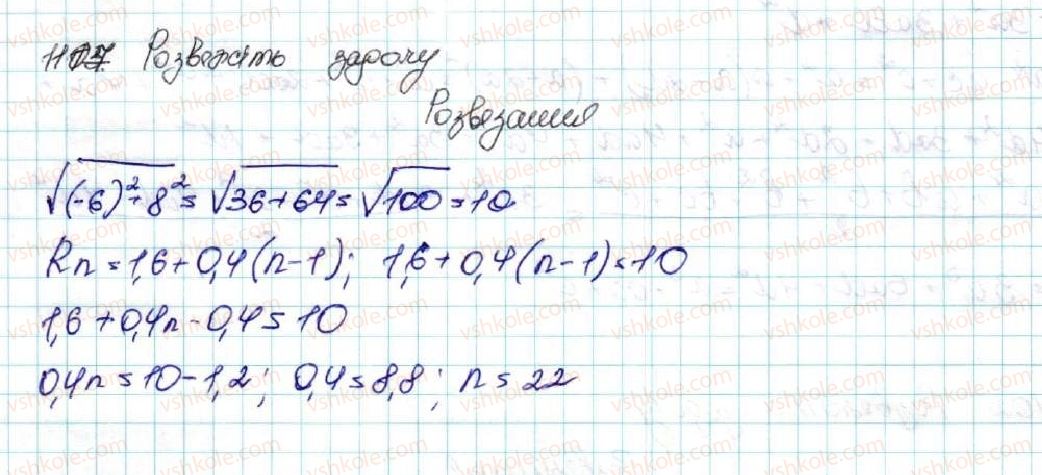 1107. Розвежіть задачу
Розвезання
√(-6)²+8² = √36+64 = √100 = 10
Rn = 1,6 + 0,4(n-1); 1,6 + 0,4(n-1) = 10
1,6 + 0,4n - 0,4 = 10
0,4n = 10 - 1,2; 0,4 = 8,8; n = 22